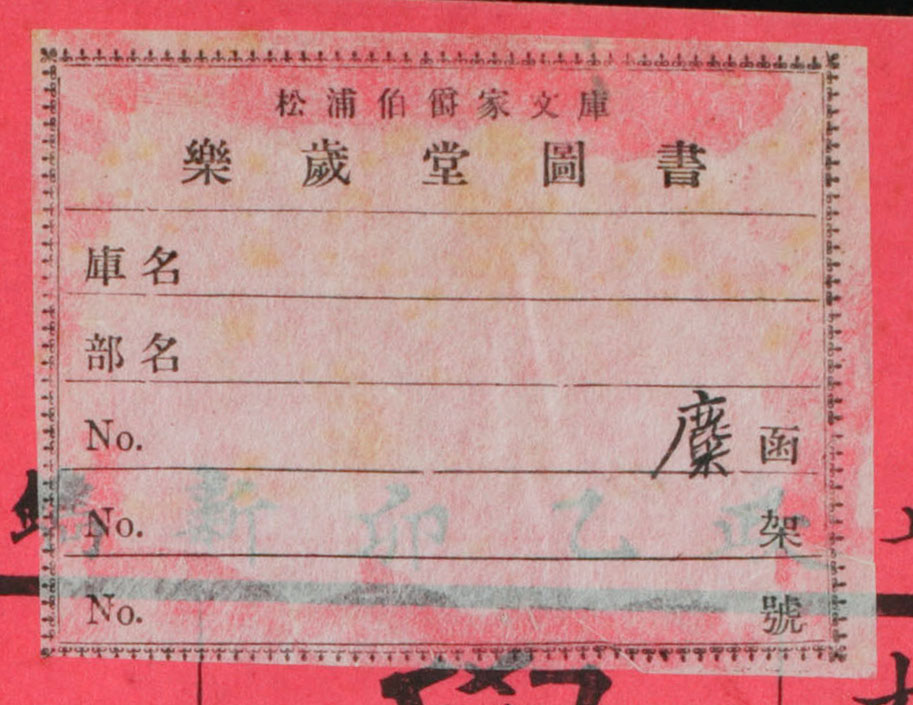 松浦伯爵家文庫
樂歲堂圖書
庫名
部名
No. 函
No. 架
No. 號